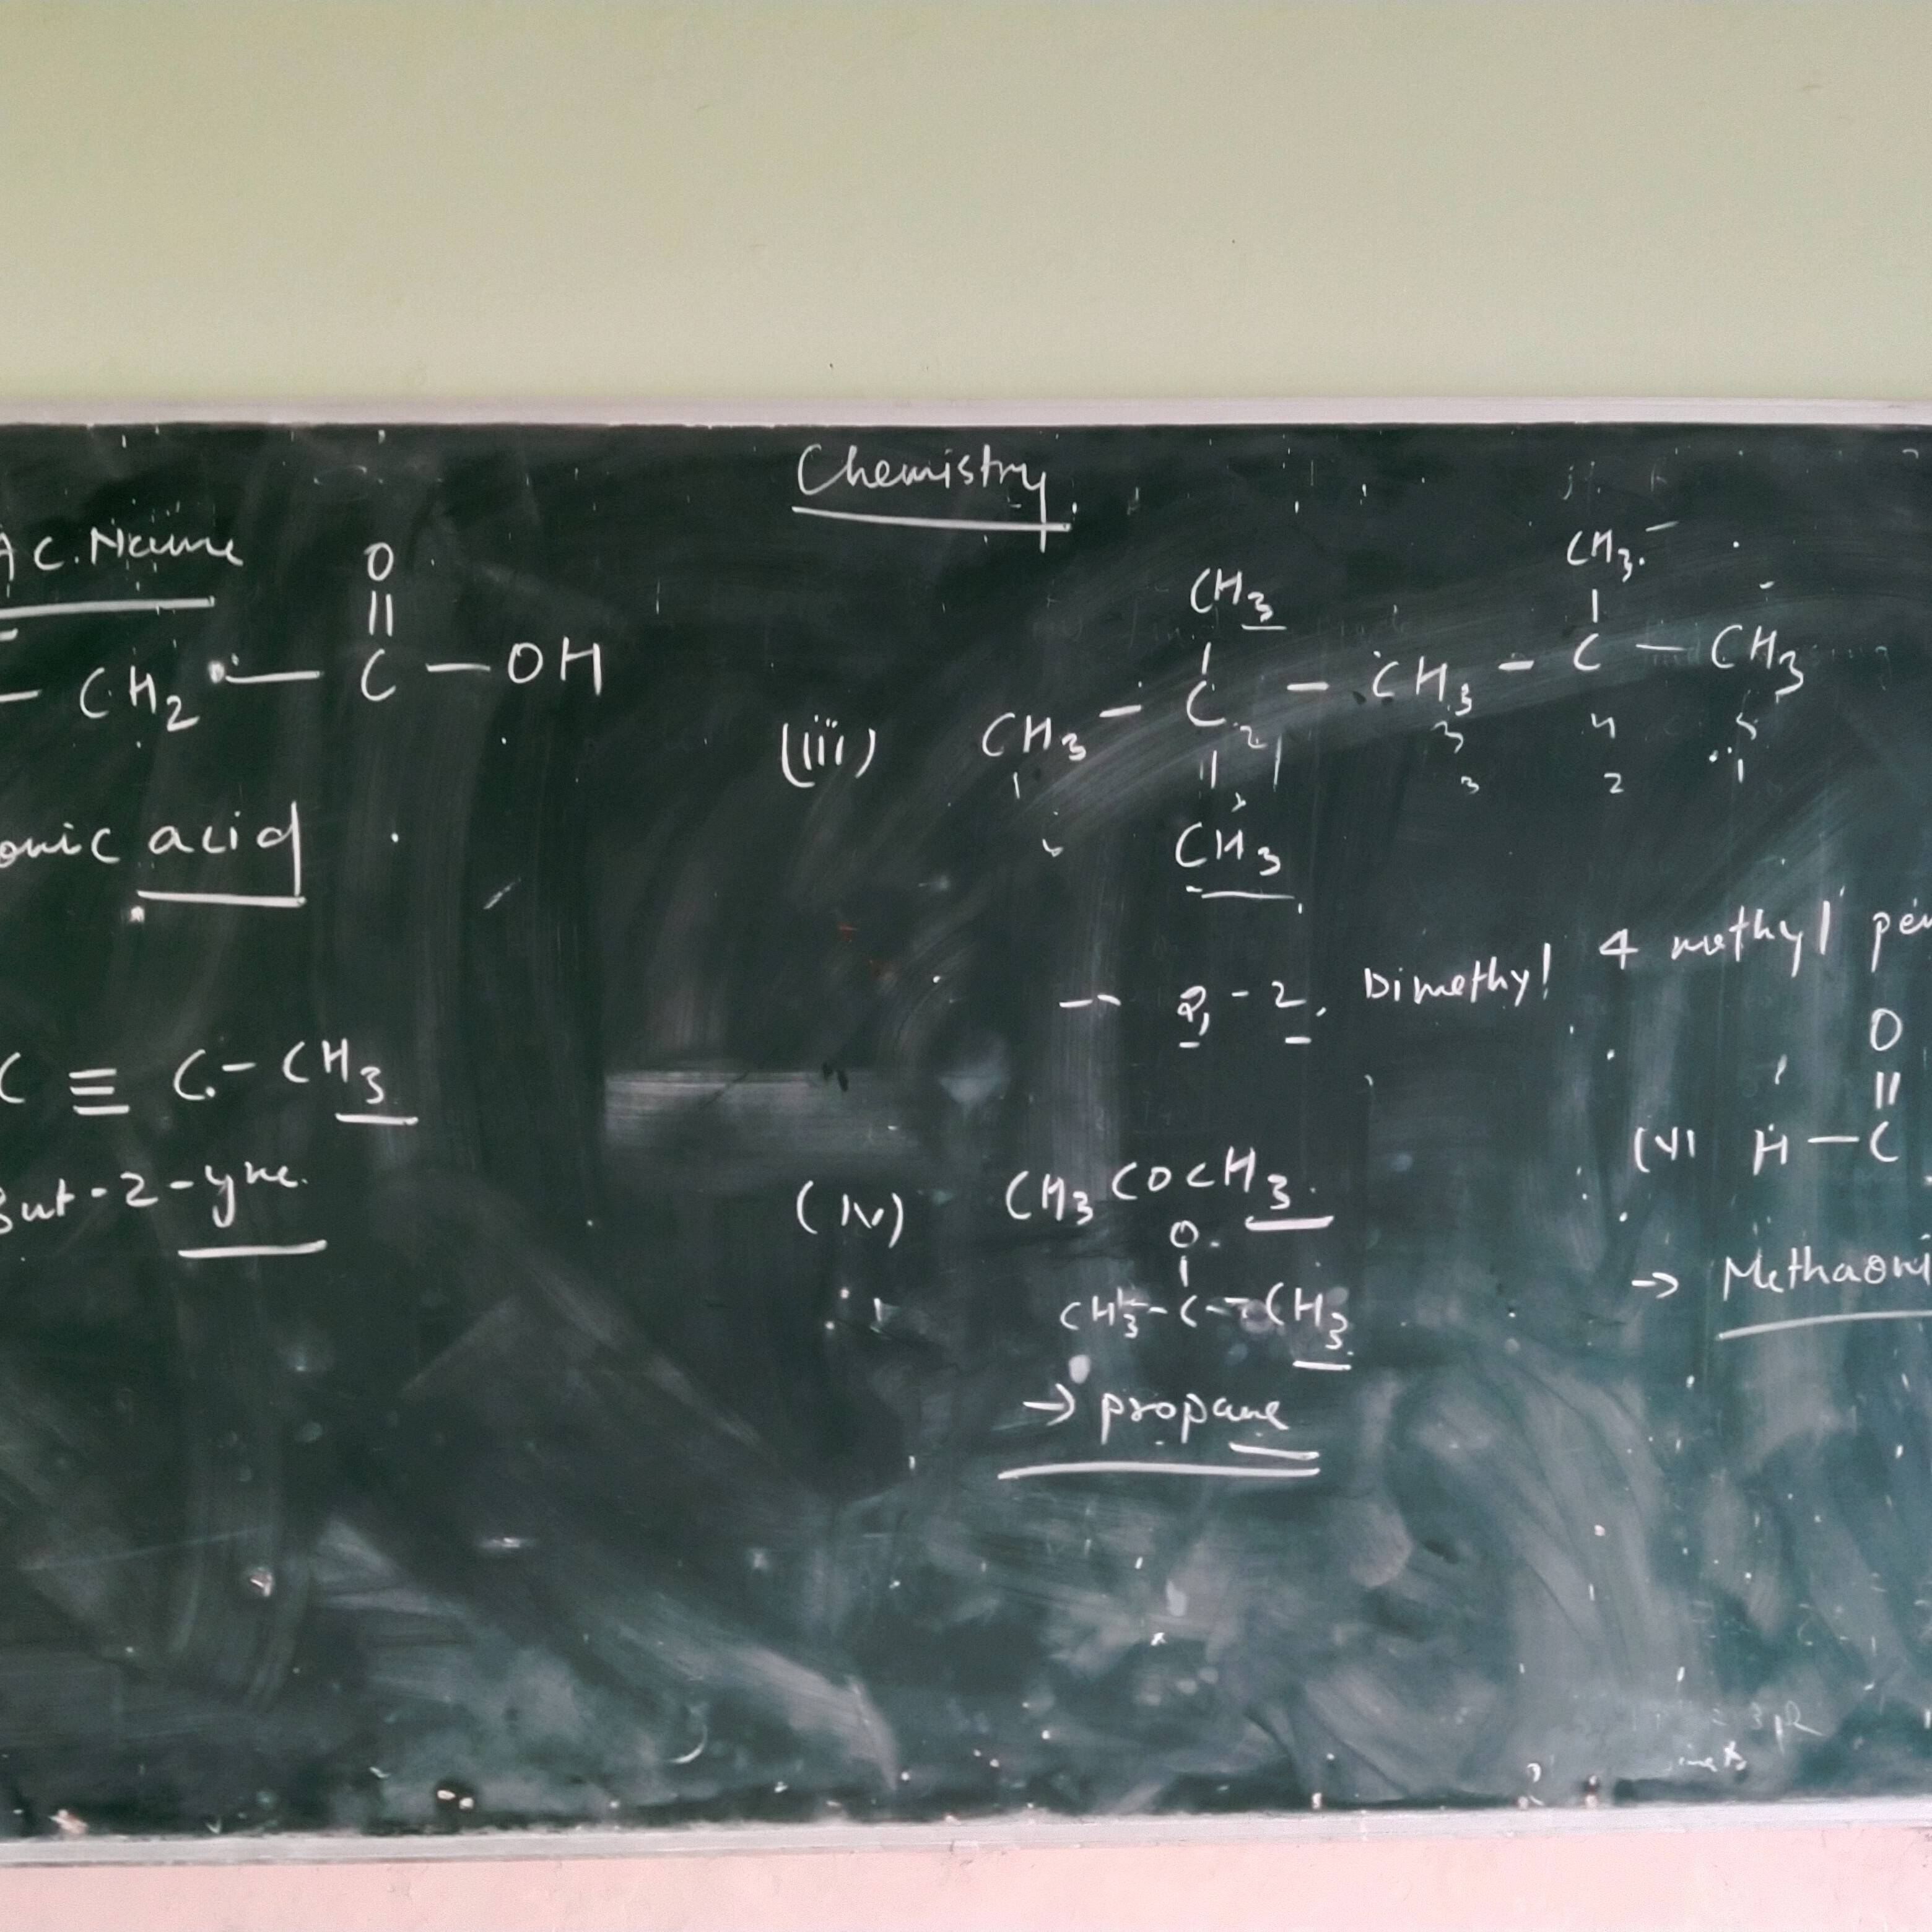 Chemistry
AC. Name
O
||
- CH2 - C - OH
onic acid
C ≡ C - CH3
But-2-yne.
CH3 CH3
| |
(iii) CH3 - C - CH3 - C - CH3
1 2 3 4 5
|| 3 2 1
CH3
-- 2, - 2, Dimethyl 4 methyl pen
(iv) CH3COCH3
O
|
CH3 - C - CH3
→ propane
O
||
(v) H - C
→ Methaoni